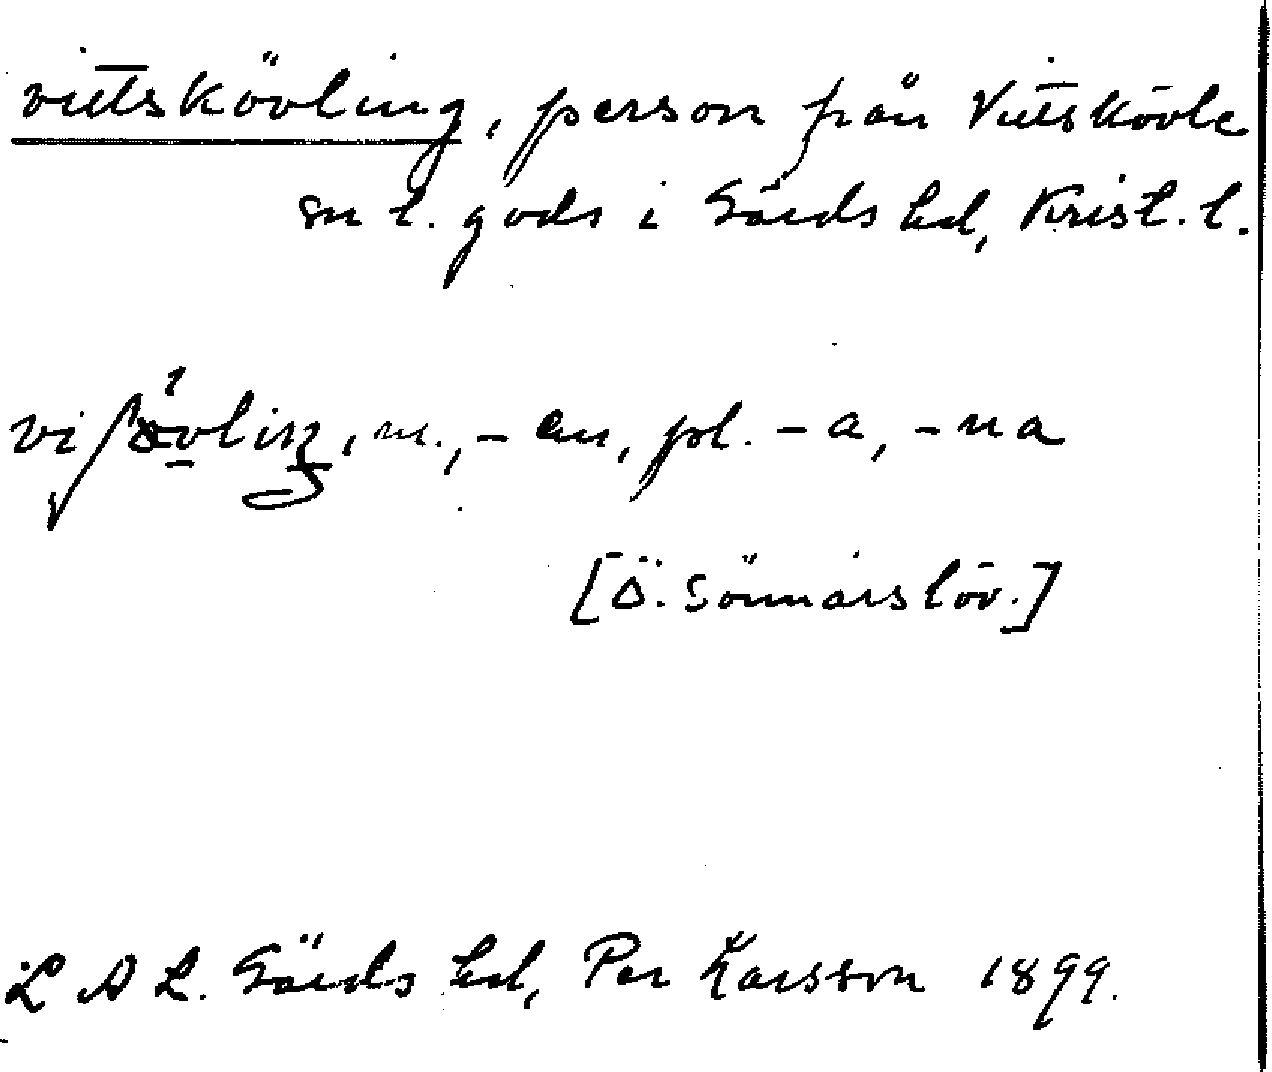 vittskövling, person från Vittskövle
sn l. gods i Gärds hd, Krist. l.
m., -en, pl. -a, -na
[Ö. Sönnarslöv.]
L A L. Gärds hd, Per Karsson 1899.